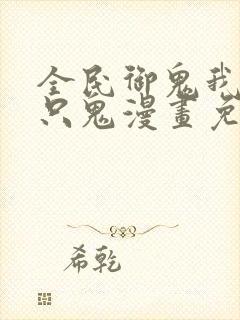 全民御鬼我
只鬼漫畫免
希乾